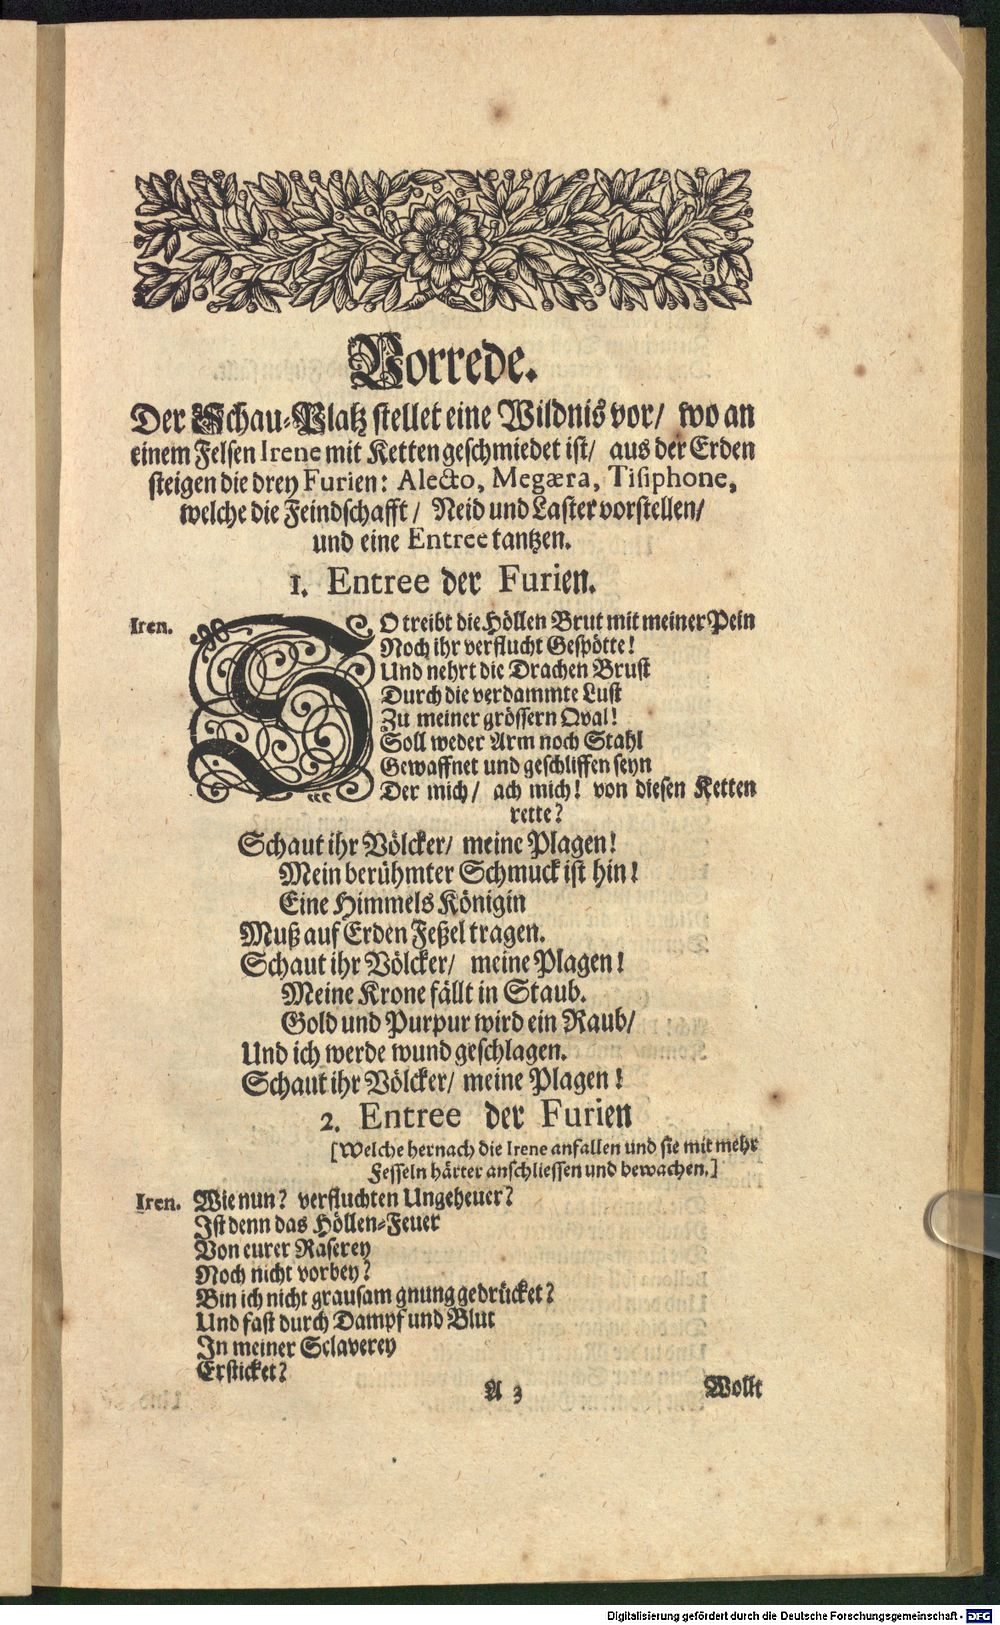 Vorrede.
Der Schau-Platz stellet eine Wildnis vor/ wo an
einem Felsen Irene mit Ketten geschmiedet ist/ aus der Erden
steigen die drey Furien: Alecto, Megæra, Tisiphone,
welche die Feindschafft/ Neid und Laster vorstellen/
und eine Entree tantzen.
1. Entree der Furien.
Iren. SO treibt die Höllen Brut mit meiner Pein
Noch ihr verflucht Gespötte!
Und nehrt die Drachen Brust
Durch die verdammte Lust
Zu meiner grössern Qval!
Soll weder Arm noch Stahl
Gewaffnet und geschliffen seyn
Der mich/ ach mich! von diesen Ketten
rette?
Schaut ihr Völcker/ meine Plagen!
Mein berühmter Schmuck ist hin!
Eine Himmels Königin
Muß auf Erden Feßel tragen.
Schaut ihr Völcker/ meine Plagen!
Meine Krone fällt in Staub.
Gold und Purpur wird ein Raub/
Und ich werde wund geschlagen.
Schaut ihr Völcker/ meine Plagen!
2. Entree der Furien
[Welche hernach die Irene anfallen und sie mit mehr
Fesseln härter anschliessen und bewachen.]
Iren. Wie nun? verfluchten Ungeheuer?
Ist denn das Höllen-Feuer
Von eurer Raserey
Noch nicht vorbey?
Bin ich nicht grausam gnung gedrücket?
Und fast durch Dampf und Blut
In meiner Sclaverey
Ersticket?
A 3 Wollt
Digitalisierung gefördert durch die Deutsche Forschungsgemeinschaft - DFG